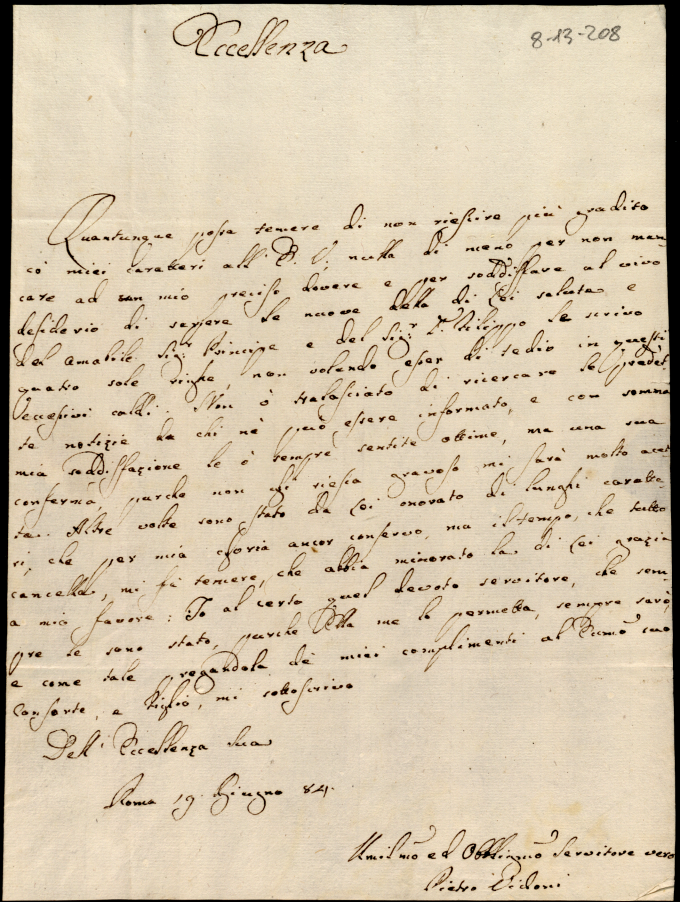 Eccellenza
8-13-208
Quantunque possa temere di non riescire più gradito
co' miei caratteri all' E. V., nulla di meno per non man
care ad un mio preciso dovere e per soddisfare al vivo
desiderio di sapere le nuove della di Lei salute e
del amabile Sig.r Principe e del Sig.r D. Filippo le scrivo
quatro sole righe, non volendo esser di tedio in questi
eccessivi caldi. Non ò tralasciato di ricercare le predet
te notizie da chi nè può essere informato, e con somma
mia soddisfazione le ò sempre sentite ottime, ma una sua
conferma, purche non gli riesca gravoso mi sarà molto acet
ta. Altre volte sono stato da Lei onorato di lunghi caratte
ri, che per mia gloria ancor conservo, ma il tempo, che tutto
cancella, mi fà temere, che abbia minorato la di Lei grazia
a mio favore: Io al certo quel devoto servitore, che sem
pre le sono stato, purche Ella me lo permetta, sempre sarò,
e come tale pregandola de miei complimenti al suo
Consorte, e Figlio, mi sottoscrivo
Dell' Eccellenza Sua
Roma 19. Giugno 84.
Umilmo ed Obbligmo Servitore vero
Pietro Vidoni